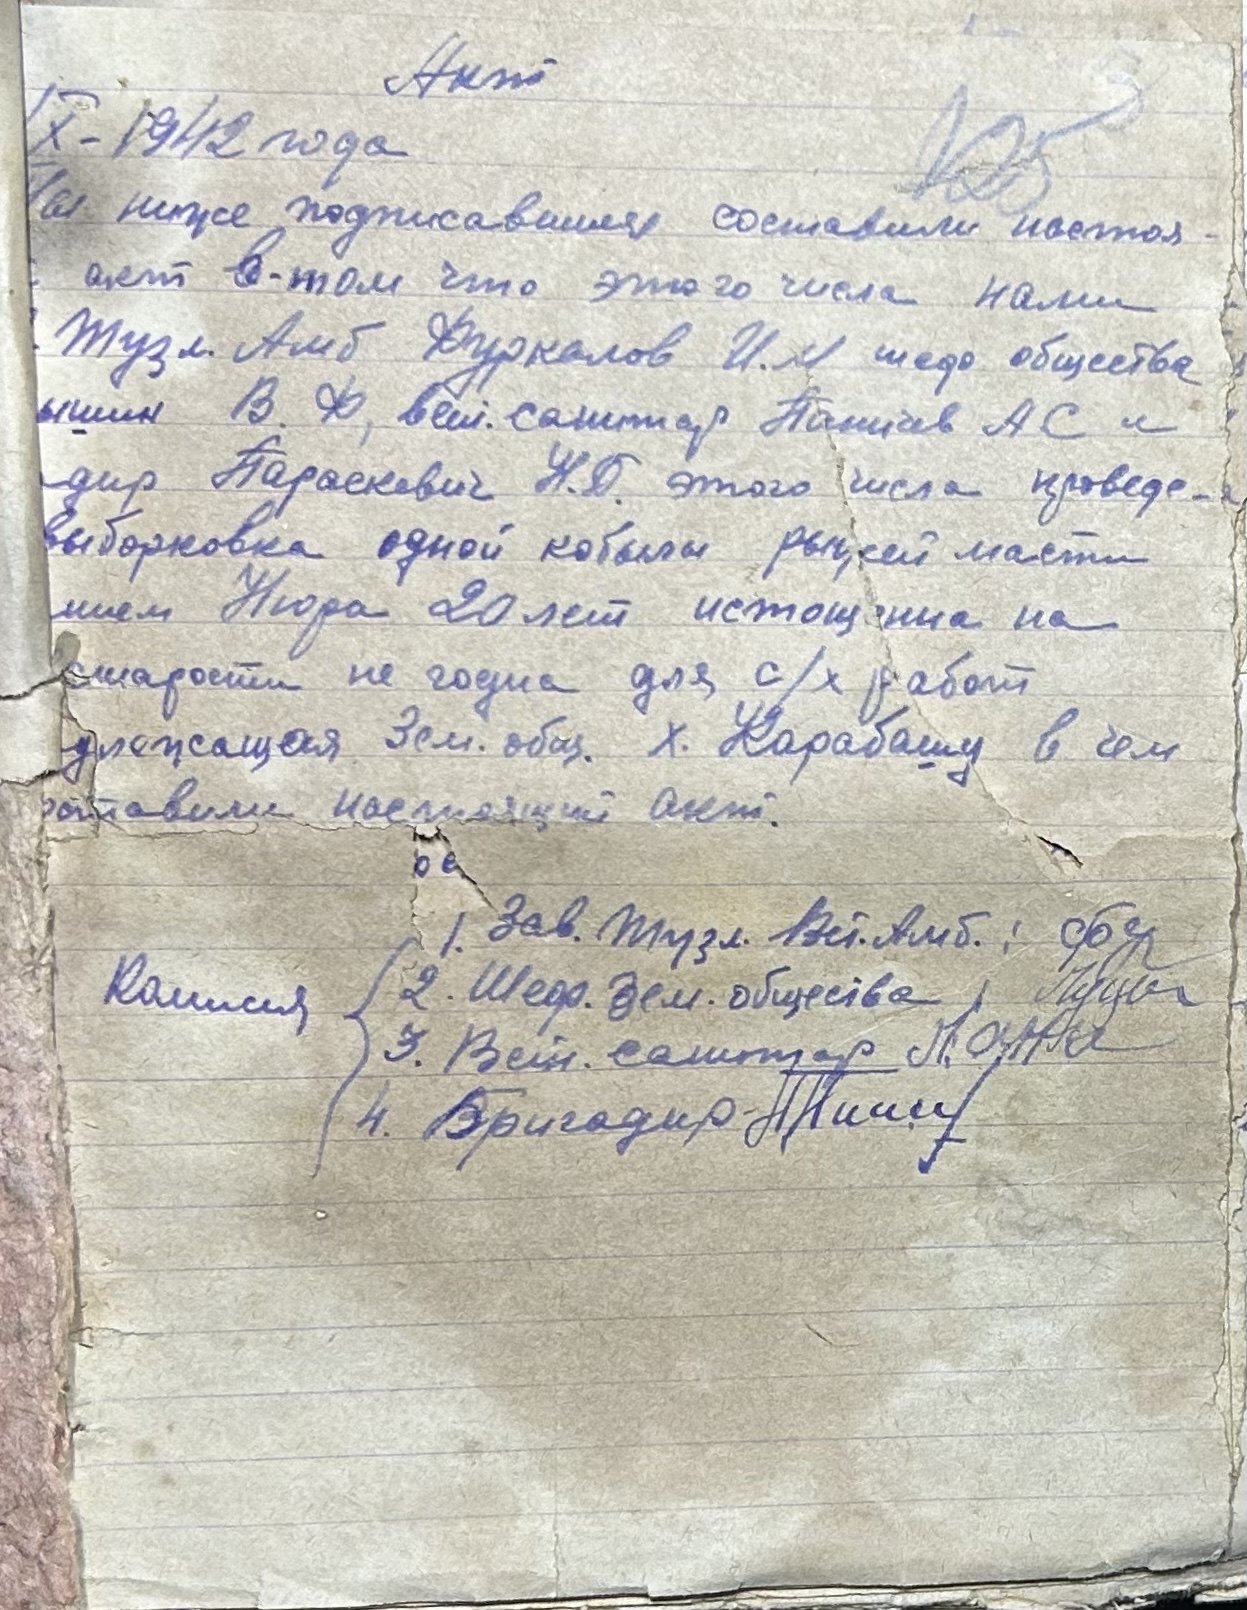 Акт
125
X-1942 года
ниже подписавшиеся составили настоя-
акт в-том что этого числа нами
Тузл. Амб Фуркалов И.М шедо общества
ышин В. Ф, вет. санитар Паничев А С и
дир Параскевич Н.Г. этого числа проведе-
выборковка одной кобылы рыжей масти
нием Нюра 20 лет истощенна на
старости не годна для с/х работ
длежащая Зем. общ. х. Карабашу в чем
составили настоящий акт.
1. Зав. Тузл. Вет. Амб. :
Комисия 2. Шедр. Зем. общества ;
3. Вет. санитар
4. Бригадир-